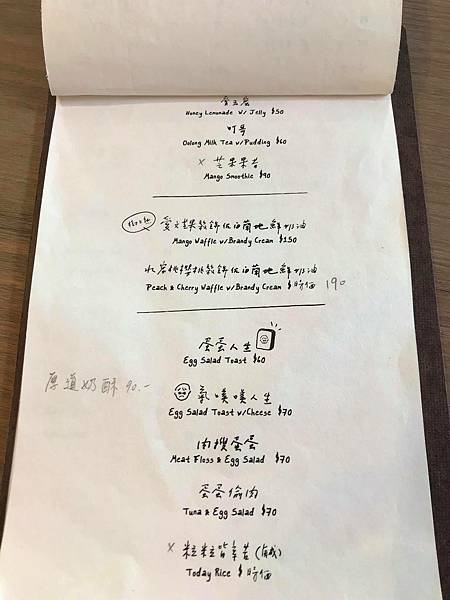 Honey Lemonade w/ Jelly $50
叮哥
Oolong Milk Tea w/Pudding $60
× 芒果果昔
Mango Smoothie $90
愛文芒果鬆餅佐白蘭地鮮奶油
Mango Waffle w/Brandy Cream $150
水蜜桃櫻桃鬆餅佐白蘭地鮮奶油
Peach & Cherry Waffle w/Brandy Cream $時價 190
蛋蛋人生
Egg Salad Toast $60
厚道奶酥 90.-
氣噗噗人生
Egg Salad Toast w/Cheese $70
肉搜蛋蛋
Meat Floss & Egg Salad $70
蛋蛋偷肉
Tuna & Egg Salad $70
× 粒粒皆辛苦
Today Rice $時価